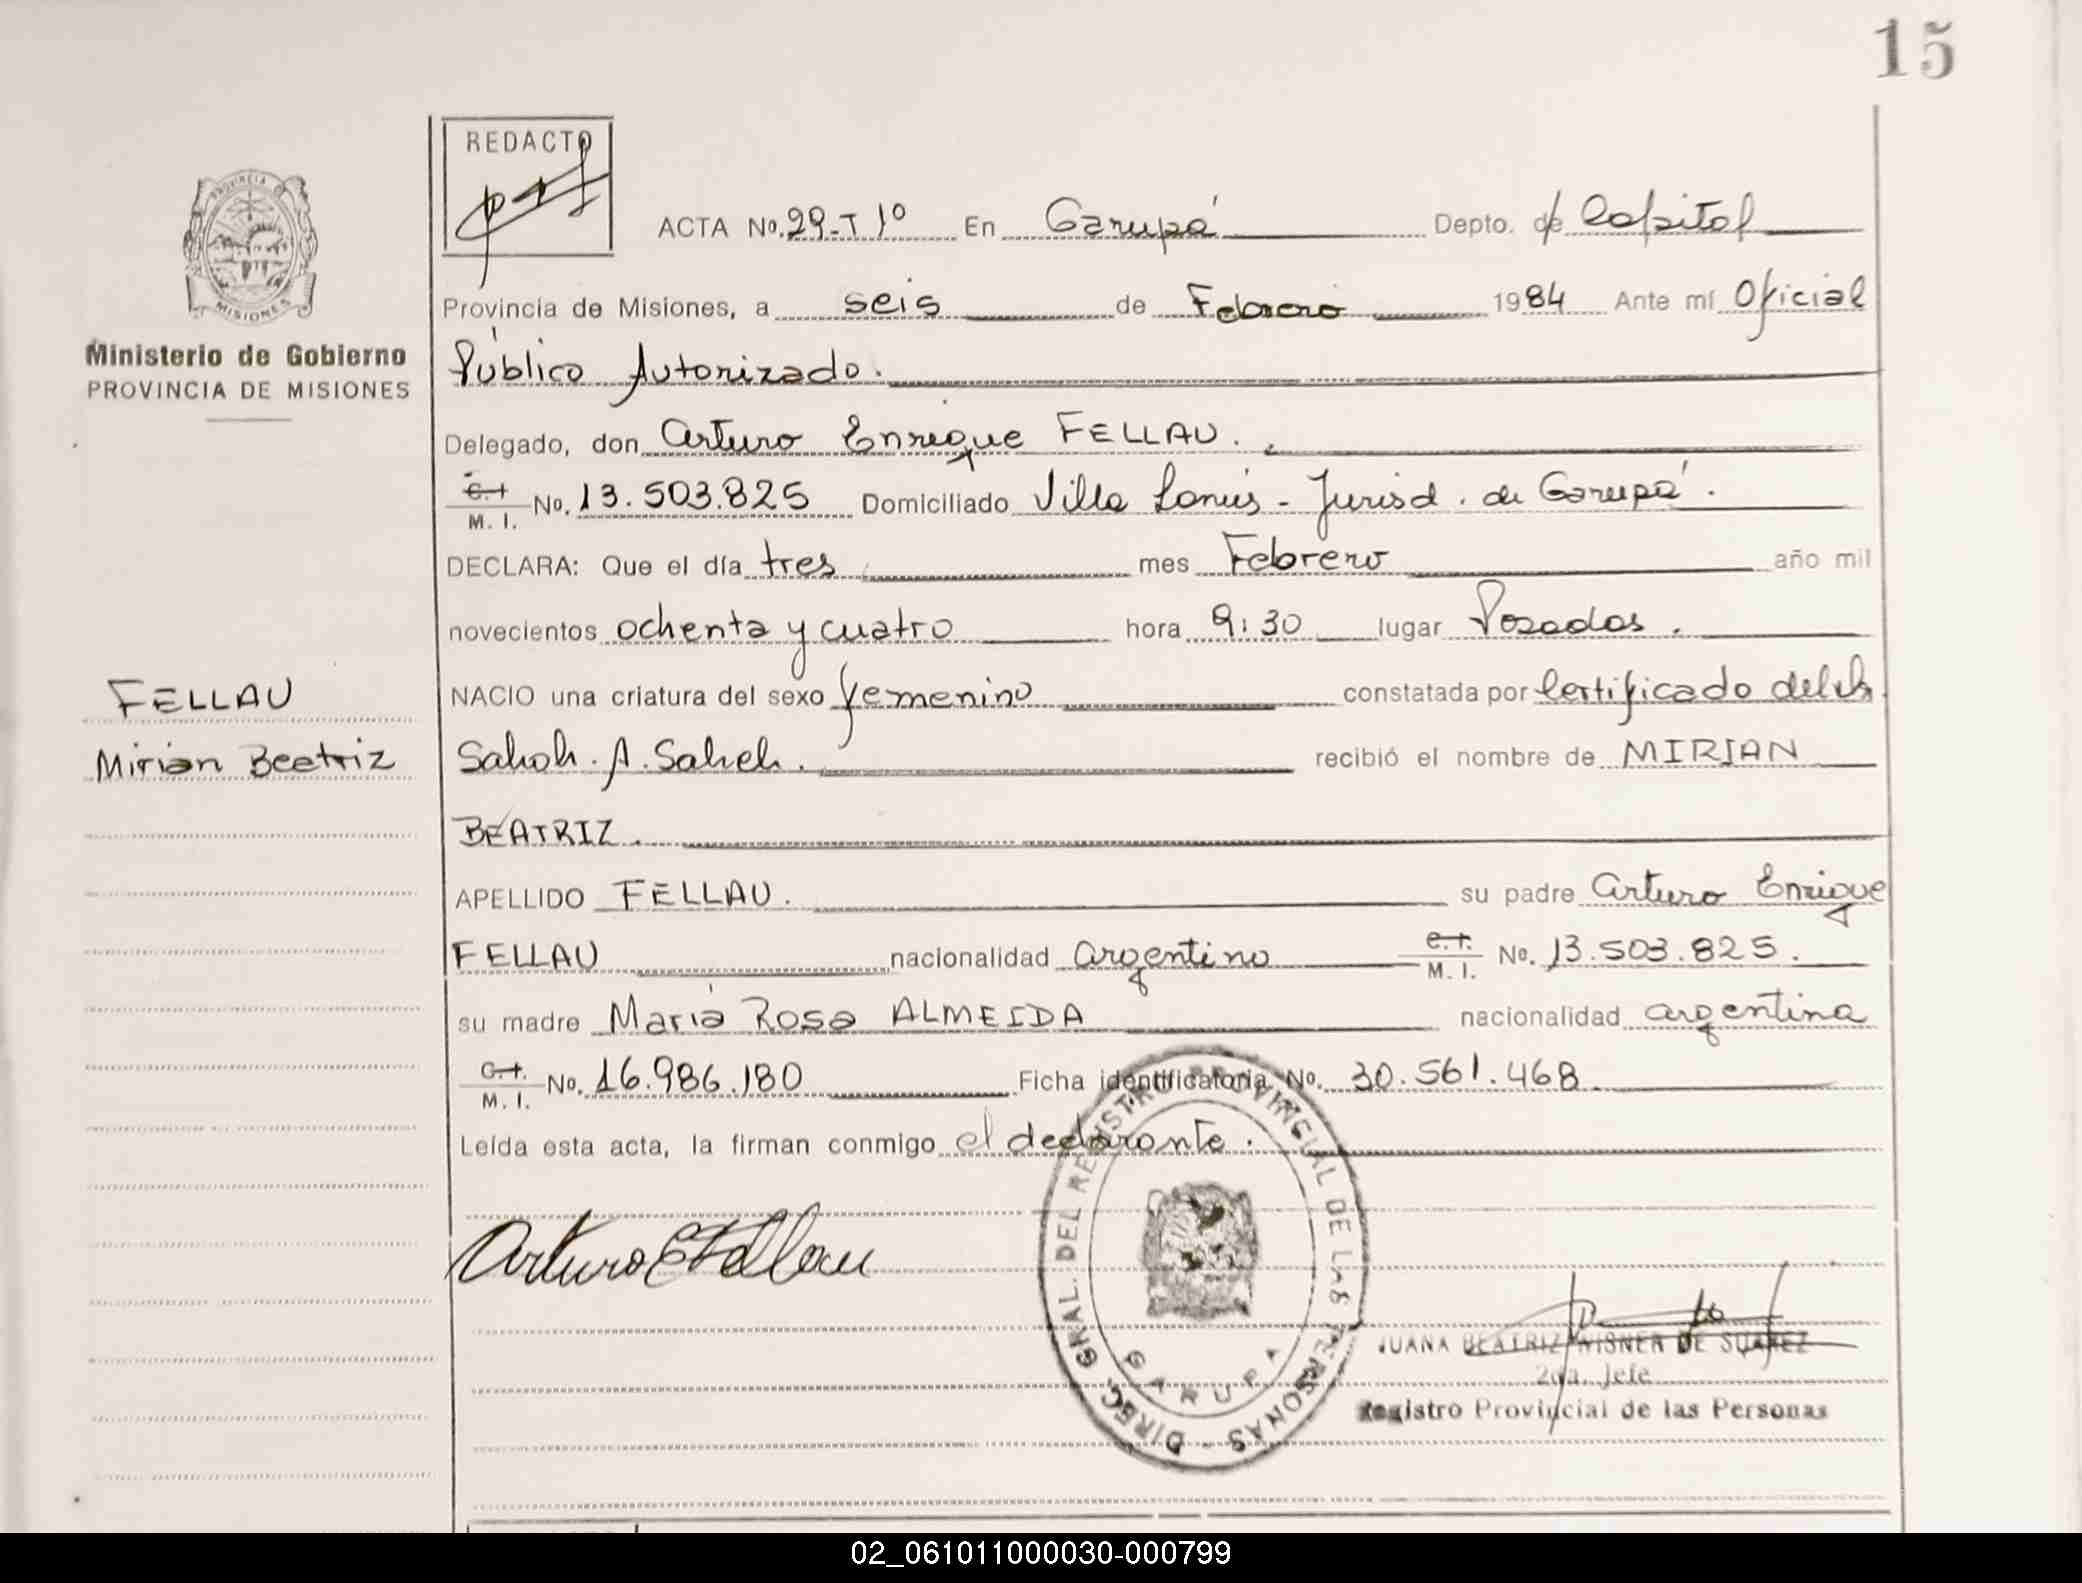 15
REDACTO
PROVINCIA
MISIONES
Ministerio de Gobierno
PROVINCIA DE MISIONES
ACTA No. 29-T 1º En Garupá Depto. de Capital
Provincia de Misiones, a seis de Febrero 1984 Ante mí Oficial
Público Autorizado.
Delegado, don Arturo Enrique FELLAU.
C.I. M. I. No. 13.503.825 Domiciliado Villa Lanús - Jurisd. de Garupá.
DECLARA: Que el día tres mes Febrero año mil
novecientos ochenta y cuatro hora 9:30 lugar Posadas.
FELLAU
Mirian Beatriz
NACIO una criatura del sexo femenino constatada por Certificado del
A. recibió el nombre de MIRIAN
BEATRIZ.
APELLIDO FELLAU. su padre Arturo Enrique
FELLAU nacionalidad argentino C.I. M. I. No. 13.503.825.
su madre María Rosa ALMEIDA nacionalidad argentina
C.I. M. I. No. 16.986.180 Ficha identificatoria No. 30.561.468
Leída esta acta, la firman conmigo el declarante.
Arturo E Fellau
DIREC. GRAL. DEL REGISTRO PROVINCIAL DE LAS PERSONAS -
GARUPA
JUANA BEATRIZ WISNER DE SUAREZ
2da. Jefe
Registro Provincial de las Personas
02_061011000030-000799